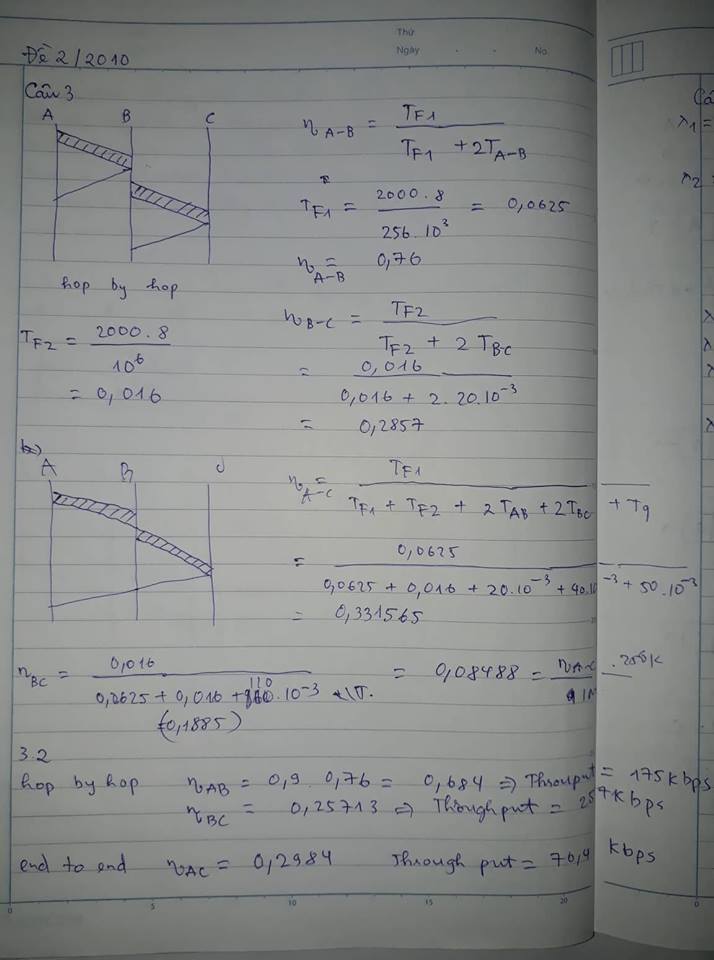 Thứ
Ngày - - No.
Đề 2 / 2010
Câu 3
A B C
hop by hop
η A-B = TF1 / (TF1 + 2TA-B)
TF1 = 2000.8 / 256.10³ = 0,0625
η A-B = 0,76
TF2 = 2000.8 / 10⁶
= 0,016
η B-C = TF2 / (TF2 + 2 TB-C)
= 0,016 / (0,016 + 2.20.10⁻³)
= 0,2857
b)
A B C
η A-C = TF1 / (TF1 + TF2 + 2TAB + 2TBC + Tq)
= 0,0625 / (0,0625 + 0,016 + 20.10⁻³ + 40.10⁻³ + 50.10⁻³)
= 0,331565
η BC = 0,016 / (0,0625 + 0,016 + 110.10⁻³) = 0,08488 = η A-C . 256K / 1M
(=0,1885)
3.2
hop by hop η AB = 0,9 . 0,76 = 0,684 ⇒ Throuput = 175 kbps
η BC = 0,25713 ⇒ Throughput = 257 kbps
end to end η AC = 0,2984 Through put = 76,4 kbps
0 5 10 15 20
0
Câ
λ1 =
λ2
λ
λ
λ
λ